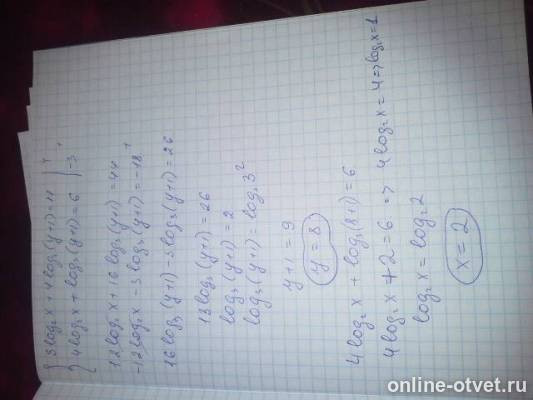 { 3 log₂ x + 4 log₃ (y+1) = 11 | 4
{ 4 log₂ x + log₃ (y+1) = 6 | -3
12 log₂ x + 16 log₃ (y+1) = 44
-12 log₂ x - 3 log₃ (y+1) = -18
16 log₃ (y+1) - 3 log₃ (y+1) = 26
13 log₃ (y+1) = 26
log₃ (y+1) = 2
log₃ (y+1) = log₃ 3²
y+1 = 9
y = 8
4 log₂ x + log₃ (8+1) = 6
4 log₂ x + 2 = 6 => 4 log₂ x = 4 => log₂ x = 1
log₂ x = log₂ 2
x = 2
online-otvet.ru